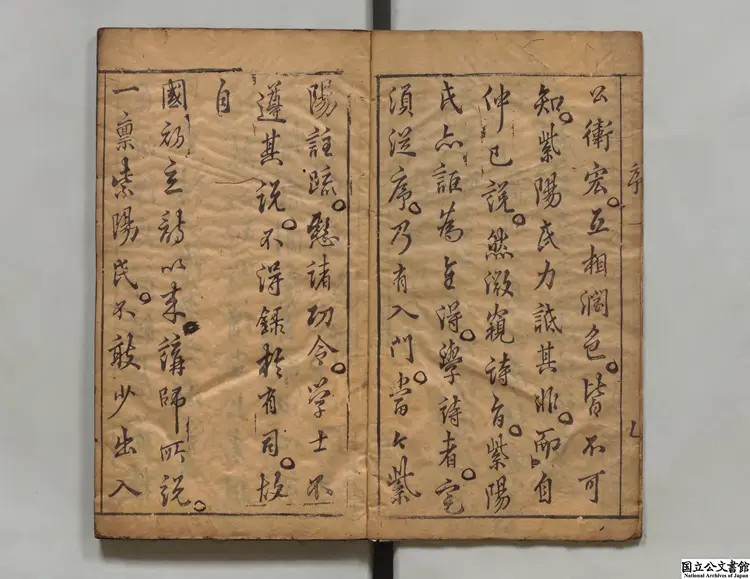 序
公衛宏。互相潤色。皆不可
知。紫陽氏力詆其非。而自
仲已說。然微窺詩旨。紫陽
氏亦詎為全得。學詩者。究
須從序。乃有入門。當今紫
陽註疏。懸諸功令。學士不
遵其說。不得錄於有司。故
自
國初立詩以來。講師所說。
一稟紫陽氏。不敢少出入
国立公文書館
National Archives of Japan